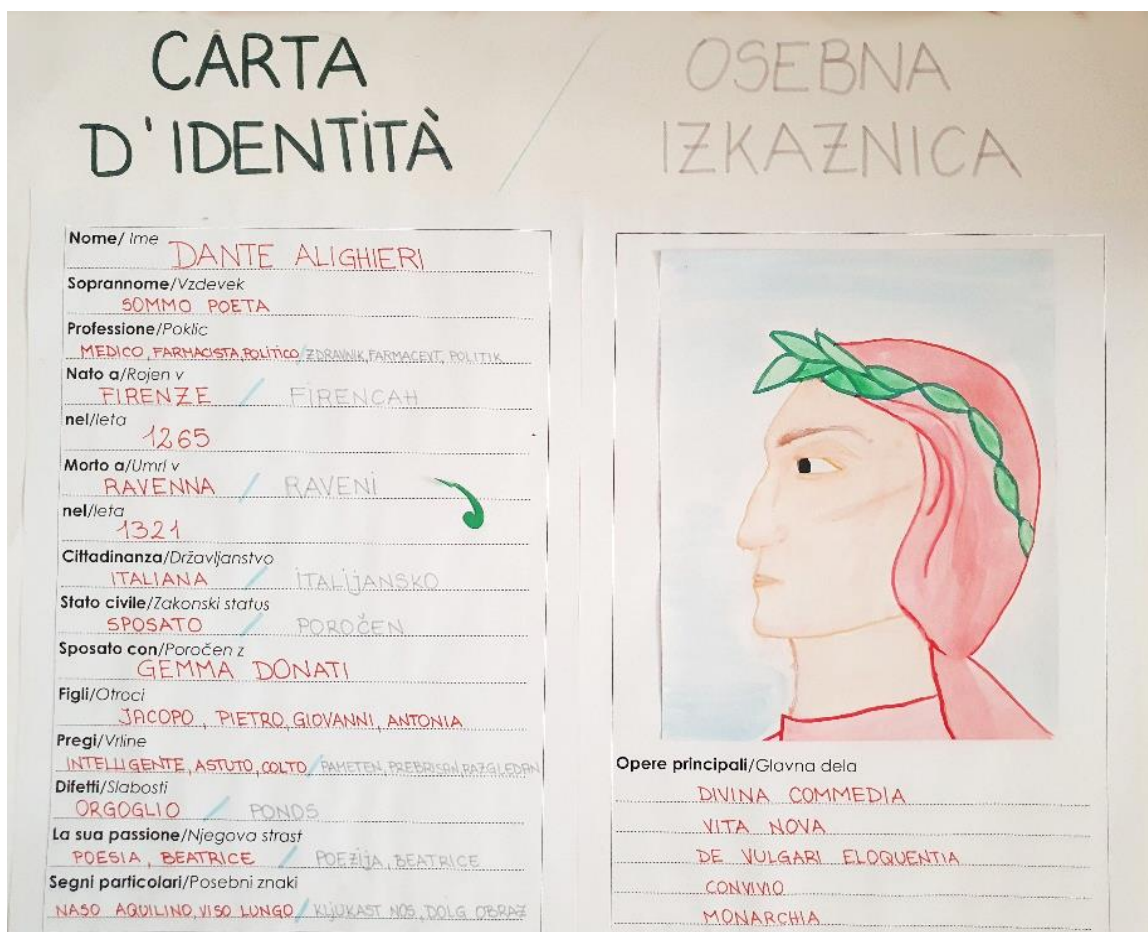 CARTA
D'IDENTITÀ
OSEBNA
IZKAZNICA
Nome/ Ime
DANTE ALIGHIERI
Soprannome/Vzdevek
SOMMO POETA
Professione/Poklic
MEDICO, FARMACISTA, POLITICO / ZDRAVNIK, FARMACEVT, POLITIK
Nato a/Rojen v
FIRENZE / FIRENCAH
nel/leta
1265
Morto a/Umrl v
RAVENNA / RAVENI
nel/leta
1321
Cittadinanza/Državljanstvo
ITALIANA / ITALIJANSKO
Stato civile/Zakonski status
SPOSATO / POROČEN
Sposato con/Poročen z
GEMMA DONATI
Figli/Otroci
JACOPO, PIETRO, GIOVANNI, ANTONIA
Pregi/Vrline
INTELLIGENTE, ASTUTO, COLTO / PAMETEN, PREBRISAN, RAZGLEDAN
Difetti/Slabosti
ORGOGLIO / PONOS
La sua passione/Njegova strast
POESIA, BEATRICE / POEZIJA, BEATRICE
Segni particolari/Posebni znaki
NASO AQUILINO, VISO LUNGO / KLJUKAST NOS, DOLG OBRAZ
Opere principali/Glavna dela
DIVINA COMMEDIA
VITA NOVA
DE VULGARI ELOQUENTIA
CONVIVIO
MONARCHIA